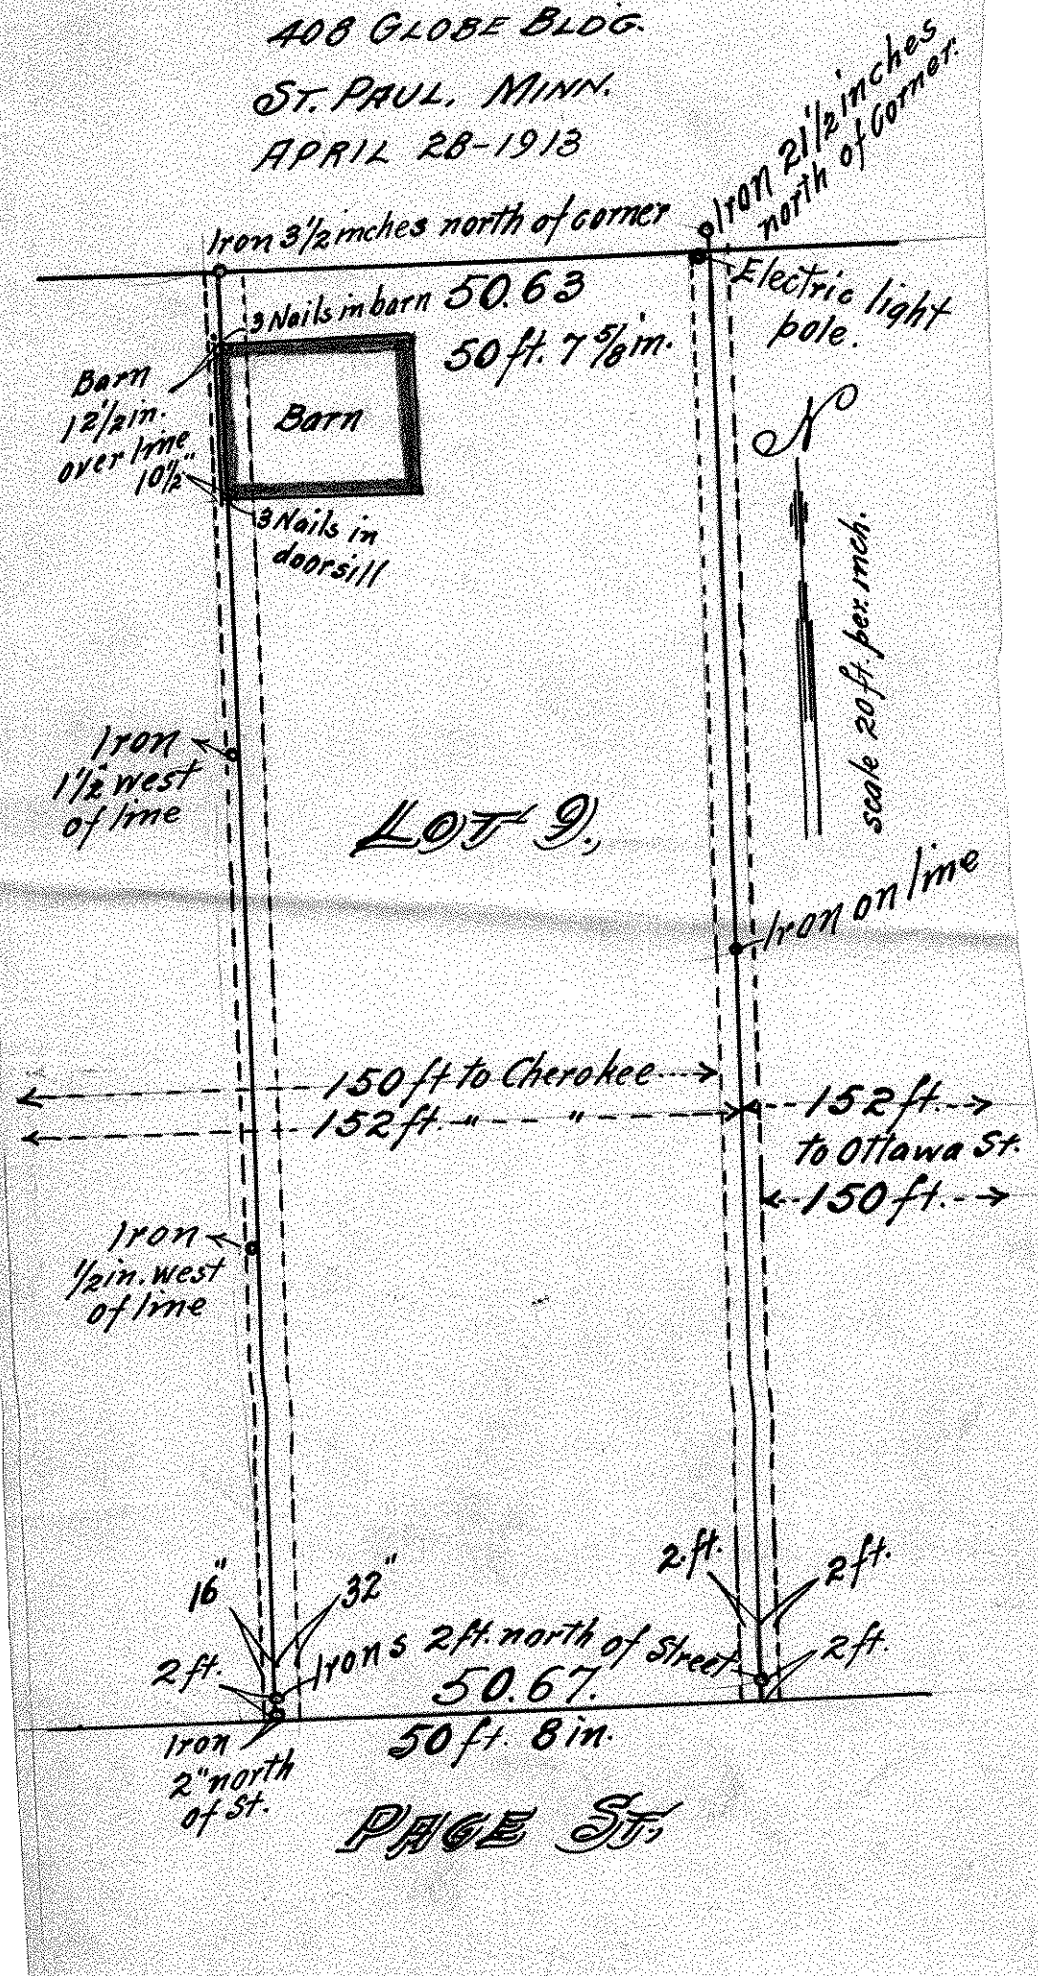 408 GLOBE BLDG.
ST. PAUL. MINN.
APRIL 28-1913
Iron 21 1/2 inches
north of Corner.
Iron 3 1/2 inches north of corner
3 Nails in barn
50.63
50 ft. 7 5/8 in.
Electric light
pole.
Barn
12 1/2 in.
over line
10 1/2"
Barn
3 Nails in
doorsill
N
scale 20 ft. per. inch.
Iron
1 1/2" west
of line
LOT 9.
Iron on line
150 ft to Cherokee
152 ft. " "
152 ft.
to Ottawa St.
150 ft.
Iron
1/2 in. west
of line
16"
32"
2 ft.
2 ft.
2 ft.
Irons 2 ft. north of Street
2 ft.
50.67.
50 ft. 8 in.
Iron
2" north
of St.
PAGE ST.